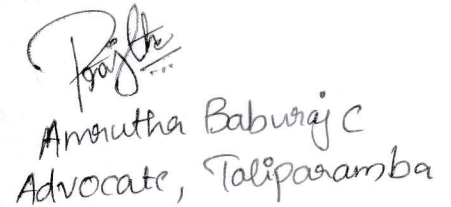 Amrutha Baburaj C
Advocate, Taliparamba